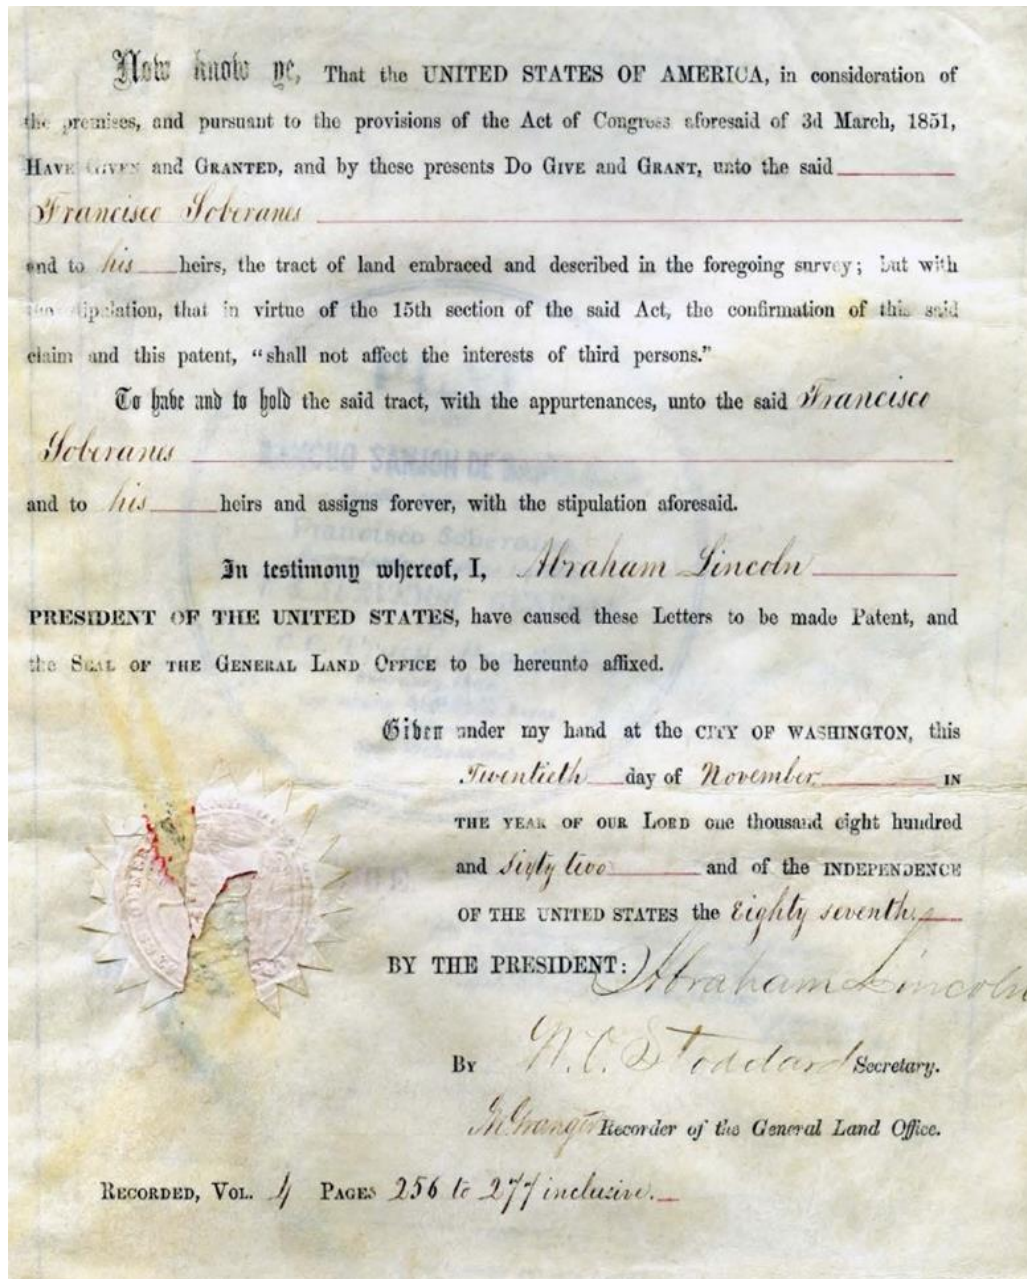 Now know ye, That the UNITED STATES OF AMERICA, in consideration of
the premises, and pursuant to the provisions of the Act of Congress aforesaid of 3d March, 1851,
HAVE GIVEN and GRANTED, and by these presents DO GIVE and GRANT, unto the said
Francisco Soberanes
and to his heirs, the tract of land embraced and described in the foregoing survey; but with
the stipulation, that in virtue of the 15th section of the said Act, the confirmation of this said
claim and this patent, "shall not affect the interests of third persons."
To have and to hold the said tract, with the appurtenances, unto the said Francisco
Soberanes
and to his heirs and assigns forever, with the stipulation aforesaid.
In testimony whereof, I, Abraham Lincoln
PRESIDENT OF THE UNITED STATES, have caused these Letters to be made Patent, and
the SEAL OF THE GENERAL LAND OFFICE to be hereunto affixed.
Given under my hand at the CITY OF WASHINGTON, this
Twentieth day of November IN
THE YEAR OF OUR LORD one thousand eight hundred
and Sixty two and of the INDEPENDENCE
OF THE UNITED STATES the Eighty seventh.
BY THE PRESIDENT: Abraham Lincoln
BY W. O. Stoddard Secretary.
Granger Recorder of the General Land Office.
RECORDED, VOL. 4 PAGES 256 to 277 inclusive.
RANCHO SANJON DE
Francisco Soberanes